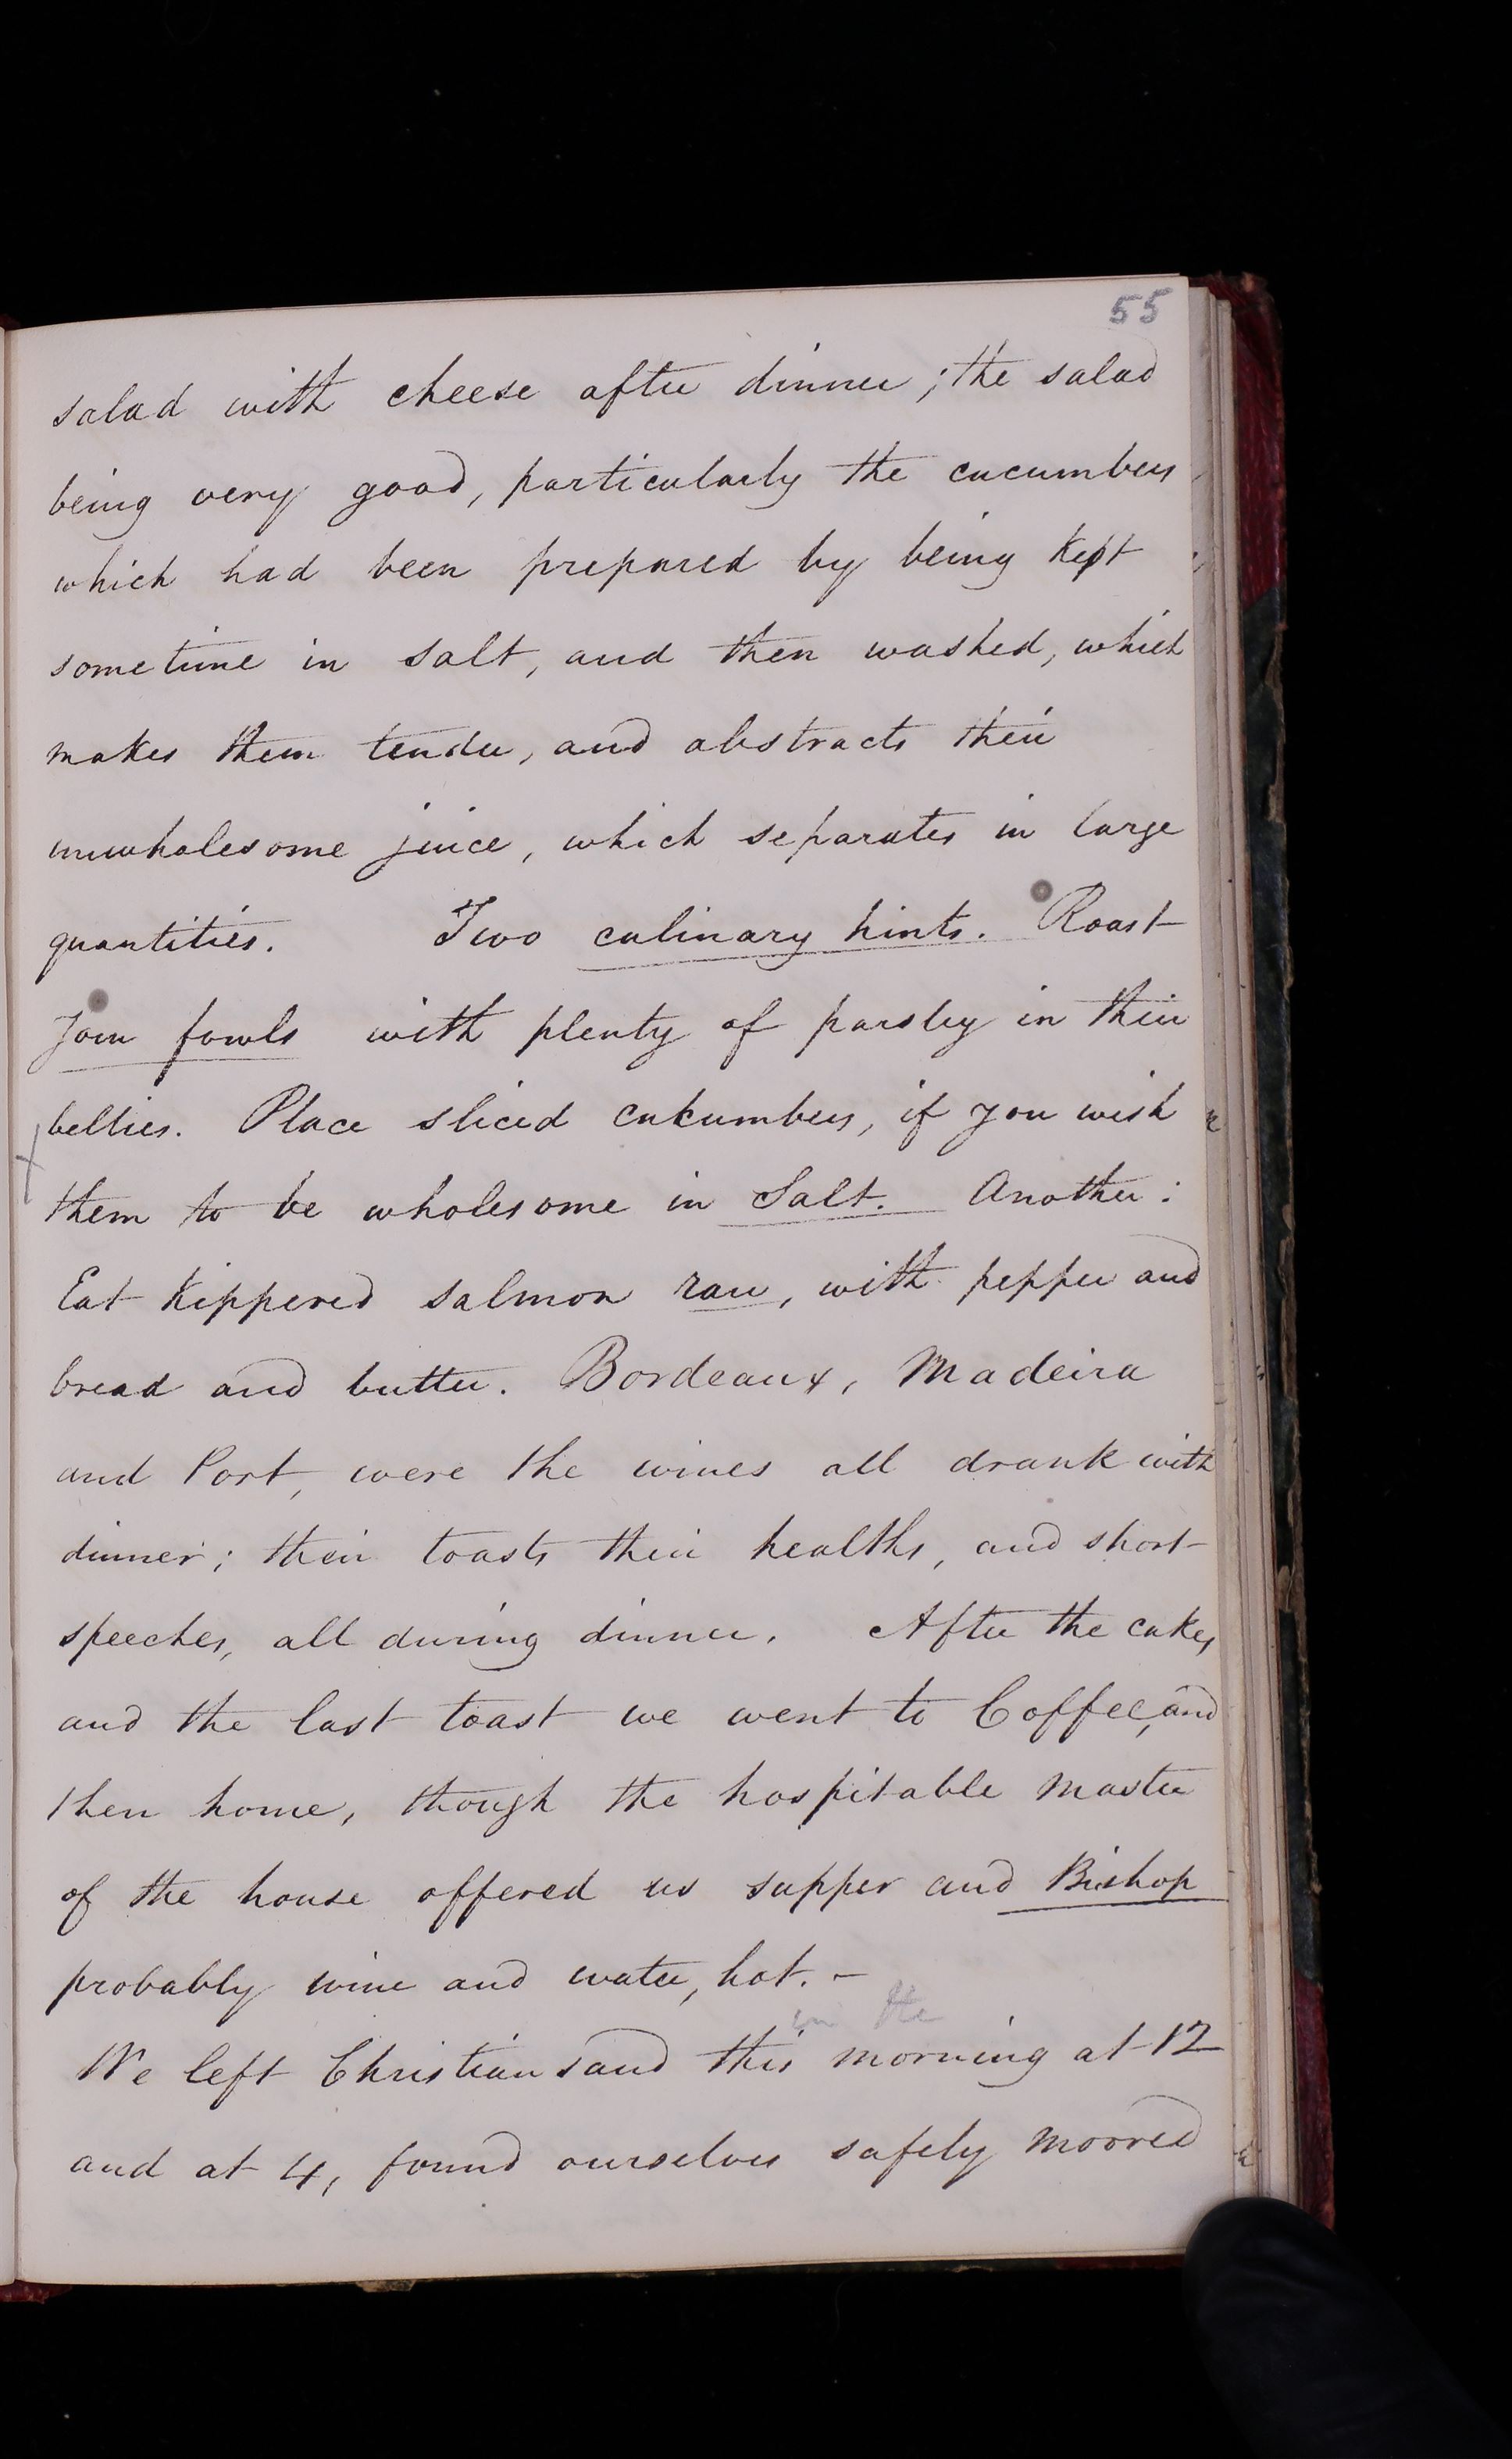 55
salad with cheese after dinner; the salad
being very good, particularly the cucumbers
which had been prepared by being kept
sometime in salt, and then washed, which
makes them tender, and abstracts their
unwholesome juice, which separates in large
quantities. Two culinary hints. Roast
your fowls with plenty of parsley in their
bellies. Place sliced cukumbers, if you wish
them to be wholesome in Salt. Another:
Eat kippered salmon raw, with pepper and
bread and butter. Bordeaux, Madeira
and Port, were the wines all drank with
dinner; their toasts their healths, and short
speeches, all during dinner. After the cakes
and the last toast we went to Coffee, and
then home, though the hospitable master
of the house offered us supper and Bishop
probably wine and water, hot. -
in the
We left Christiansand this morning at 12
and at 4, found ourselves safely moored